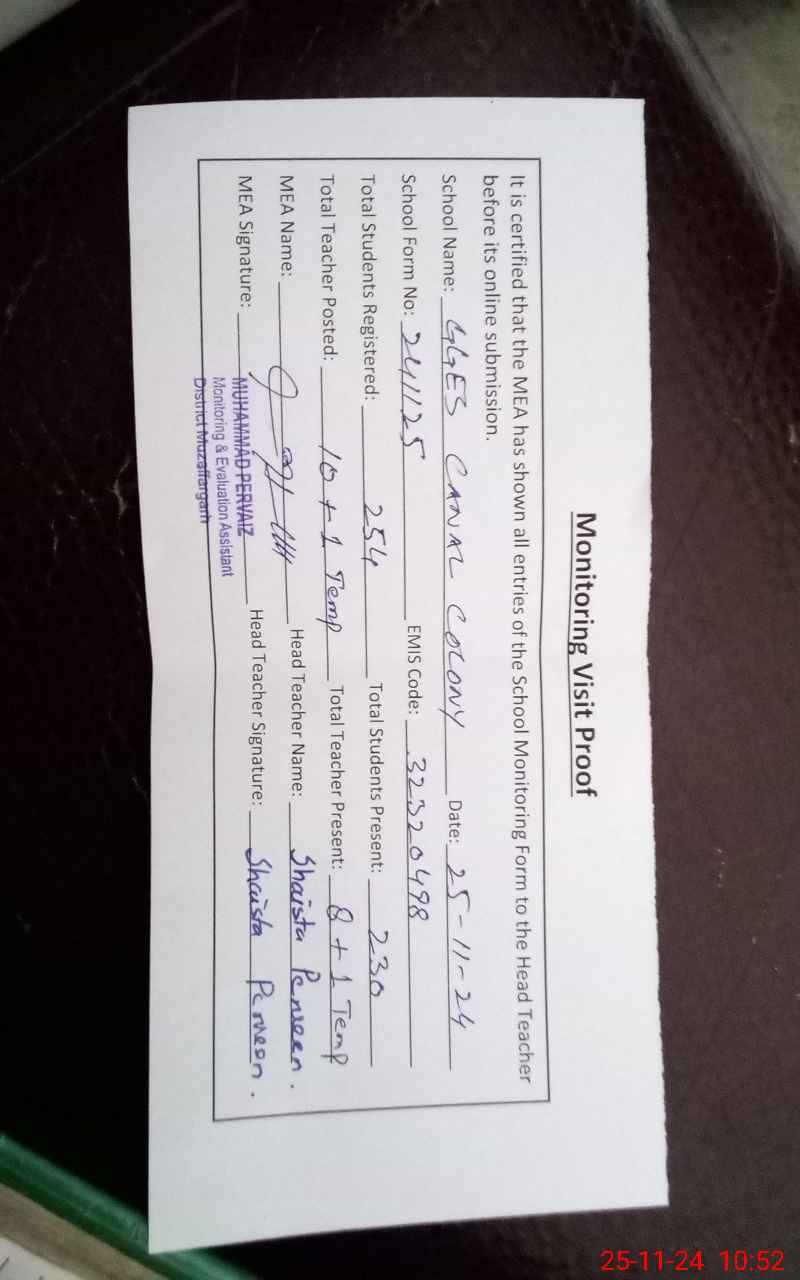 Monitoring Visit Proof
It is certified that the MEA has shown all entries of the School Monitoring Form to the Head Teacher
before its online submission.
School Name: GGES CANAL COLONY Date: 25-11-24
School Form No: 241125 EMIS Code: 32320498
Total Students Registered: 254 Total Students Present: 230
Total Teacher Posted: 10 + 1 Temp Total Teacher Present: 8 + 1 Temp
MEA Name: Head Teacher Name: Shaista Perveen.
MEA Signature: Head Teacher Signature: Shaista Perveen.
MUHAMMAD PERVAIZ
Monitoring & Evaluation Assistant
District Muzaffargarh
25-11-24 10:52